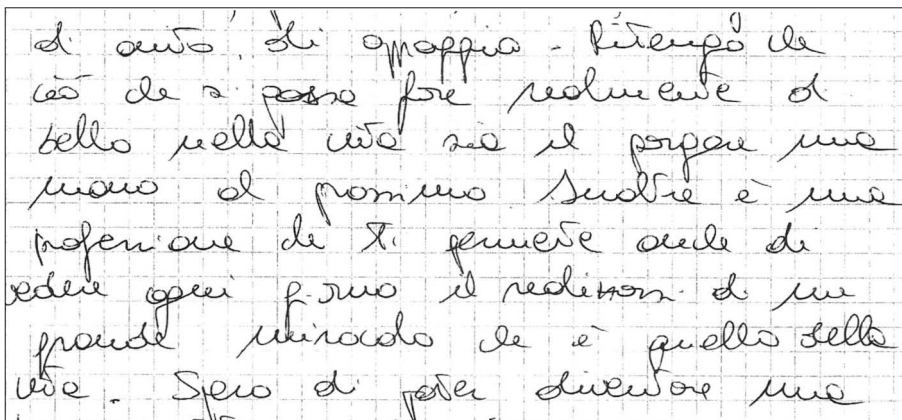 di aiuto, di appoggio. Ritengo che
ciò che si possa fare realmente di
bello nella vita sia il porgere una
mano al prossimo Inoltre è una
professione che ti permette anche di
vedere ogni giorno il realizzarsi di un
grande miracolo che è quello della
vita. Spero di poter diventare una